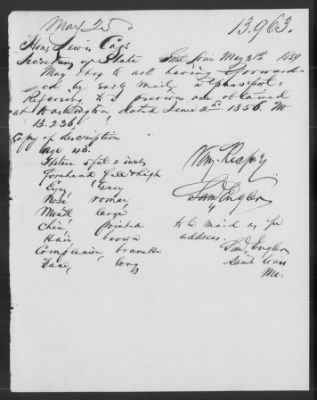 May 25
13.963.
Hon. Lewis Cass
Secretary of State Saint Louis May 21st 1859
May I beg to ask having forward-
ed by early mail, a passport:
Referring to a previous one obtained
at Washington dated June 2nd 1856. No
13.236.
Copy of description
Age 46.
Stature 5 feet 2 inches
Forehead full & high
Eyes Grey
Nose roman
Mouth large
Chin pointed
Hair brown
Complexion brunette
Face long
Very Respy
Saml Engler
to be mailed as per
address.
Sml Engler
Saint Louis
Mo.